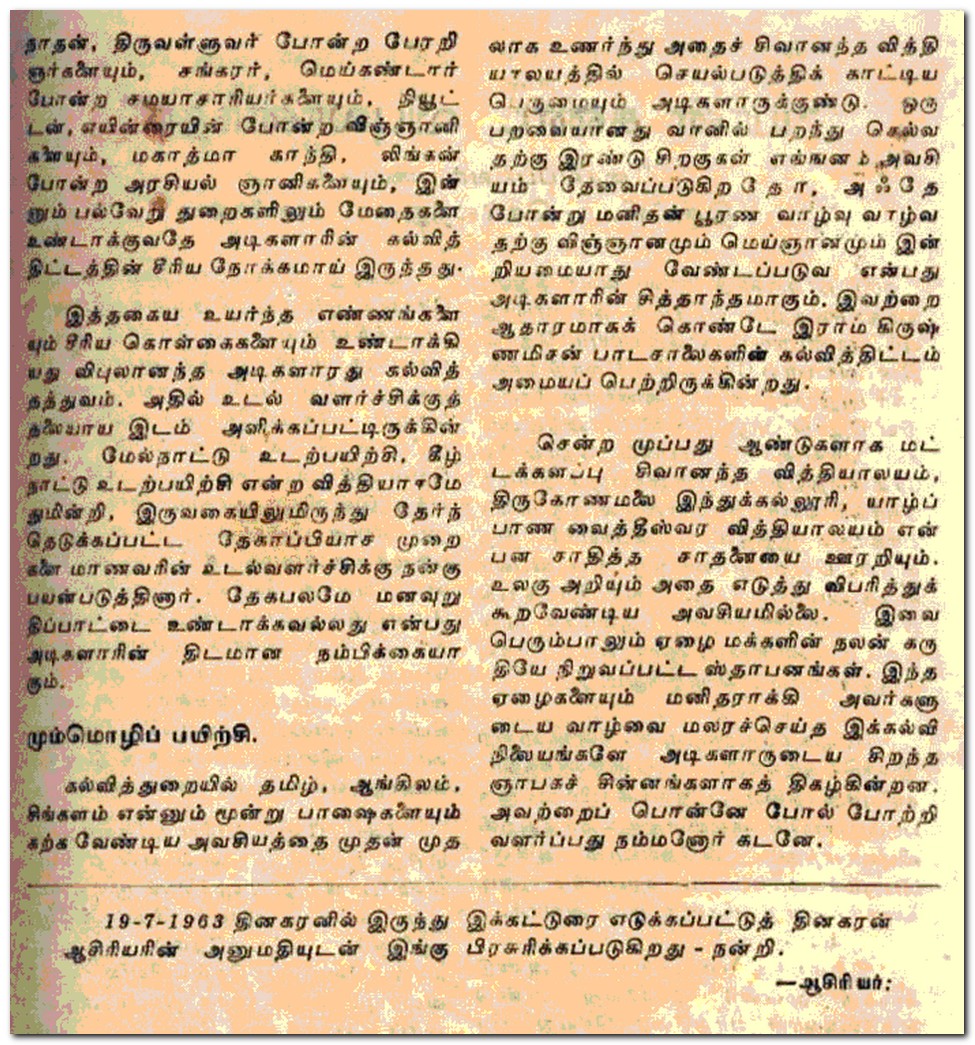 நாதன், திருவள்ளுவர் போன்ற பேரறி
ஞர்களையும், சங்கரர், மெய்கண்டார்
போன்ற சமயாசாரியர்களையும், நியூட்
டன், எயின்ரையின் போன்ற விஞ்ஞானி
களையும், மகாத்மா காந்தி, லிங்கன்
போன்ற அரசியல் ஞானிகளையும், இன்
னும் பல்வேறு துறைகளிலும் மேதைகளை
உண்டாக்குவதே அடிகளாரின் கல்வித்
திட்டத்தின் சீரிய நோக்கமாய் இருந்தது.
இத்தகைய உயர்ந்த எண்ணங்களை
யும் சீரிய கொள்கைகளையும் உண்டாக்கி
யது விபுலானந்த அடிகளாரது கல்வித்
தத்துவம். அதில் உடல் வளர்ச்சிக்குத்
தலையாய இடம் அளிக்கப்பட்டிருக்கின்
றது. மேல்நாட்டு உடற்பயிற்சி, கீழ்
நாட்டு உடற்பயிற்சி என்ற வித்தியாசமே
துமின்றி, இருவகையிலுமிருந்து தேர்ந்
தெடுக்கப்பட்ட தேகாப்பியாச முறை
களை மாணவரின் உடல்வளர்ச்சிக்கு நன்கு
பயன்படுத்தினார். தேகபலமே மனவுறு
திப்பாட்டை உண்டாக்கவல்லது என்பது
அடிகளாரின் திடமான நம்பிக்கையா
கும்.
மும்மொழிப் பயிற்சி.
கல்வித்துறையில் தமிழ், ஆங்கிலம்,
சிங்களம் என்னும் மூன்று பாஷைகளையும்
கற்க வேண்டிய அவசியத்தை முதன் முத
லாக உணர்ந்து அதைச் சிவானந்த வித்தி
யாலயத்தில் செயல்படுத்திக் காட்டிய
பெருமையும் அடிகளாருக்குண்டு. ஒரு
பறவையானது வானில் பறந்து செல்வ
தற்கு இரண்டு சிறகுகள் எங்ஙனம் அவசி
யம் தேவைப்படுகிறதோ, அஃதே
போன்று மனிதன் பூரண வாழ்வு வாழ்வ
தற்கு விஞ்ஞானமும் மெய்ஞானமும் இன்
றியமையாது வேண்டப்படுவ என்பது
அடிகளாரின் சித்தாந்தமாகும். இவற்றை
ஆதாரமாகக் கொண்டே இராம கிருஷ்
ணமிசன் பாடசாலைகளின் கல்வித்திட்டம்
அமையப் பெற்றிருக்கின்றது.
சென்ற முப்பது ஆண்டுகளாக மட்
டக்களப்பு சிவானந்த வித்தியாலயம்,
திருகோணமலை இந்துக்கல்லூரி, யாழ்ப்
பாண வைத்தீஸ்வர வித்தியாலயம் என்
பன சாதித்த சாதனையை ஊரறியும்.
உலகு அறியும் அதை எடுத்து விபரித்துக்
கூறவேண்டிய அவசியமில்லை. இவை
பெரும்பாலும் ஏழை மக்களின் நலன் கரு
தியே நிறுவப்பட்ட ஸ்தாபனங்கள். இந்த
ஏழைகளையும் மனிதராக்கி அவர்களு
டைய வாழ்வை மலரச்செய்த இக்கல்வி
நிலையங்களே அடிகளாருடைய சிறந்த
ஞாபகச் சின்னங்களாகத் திகழ்கின்றன.
அவற்றைப் பொன்னே போல் போற்றி
வளர்ப்பது நம்மனோர் கடனே.
19-7-1963 தினகரனில் இருந்து இக்கட்டுரை எடுக்கப்பட்டுத் தினகரன்
ஆசிரியரின் அனுமதியுடன் இங்கு பிரசுரிக்கப்படுகிறது - நன்றி.
—ஆசிரியர்: